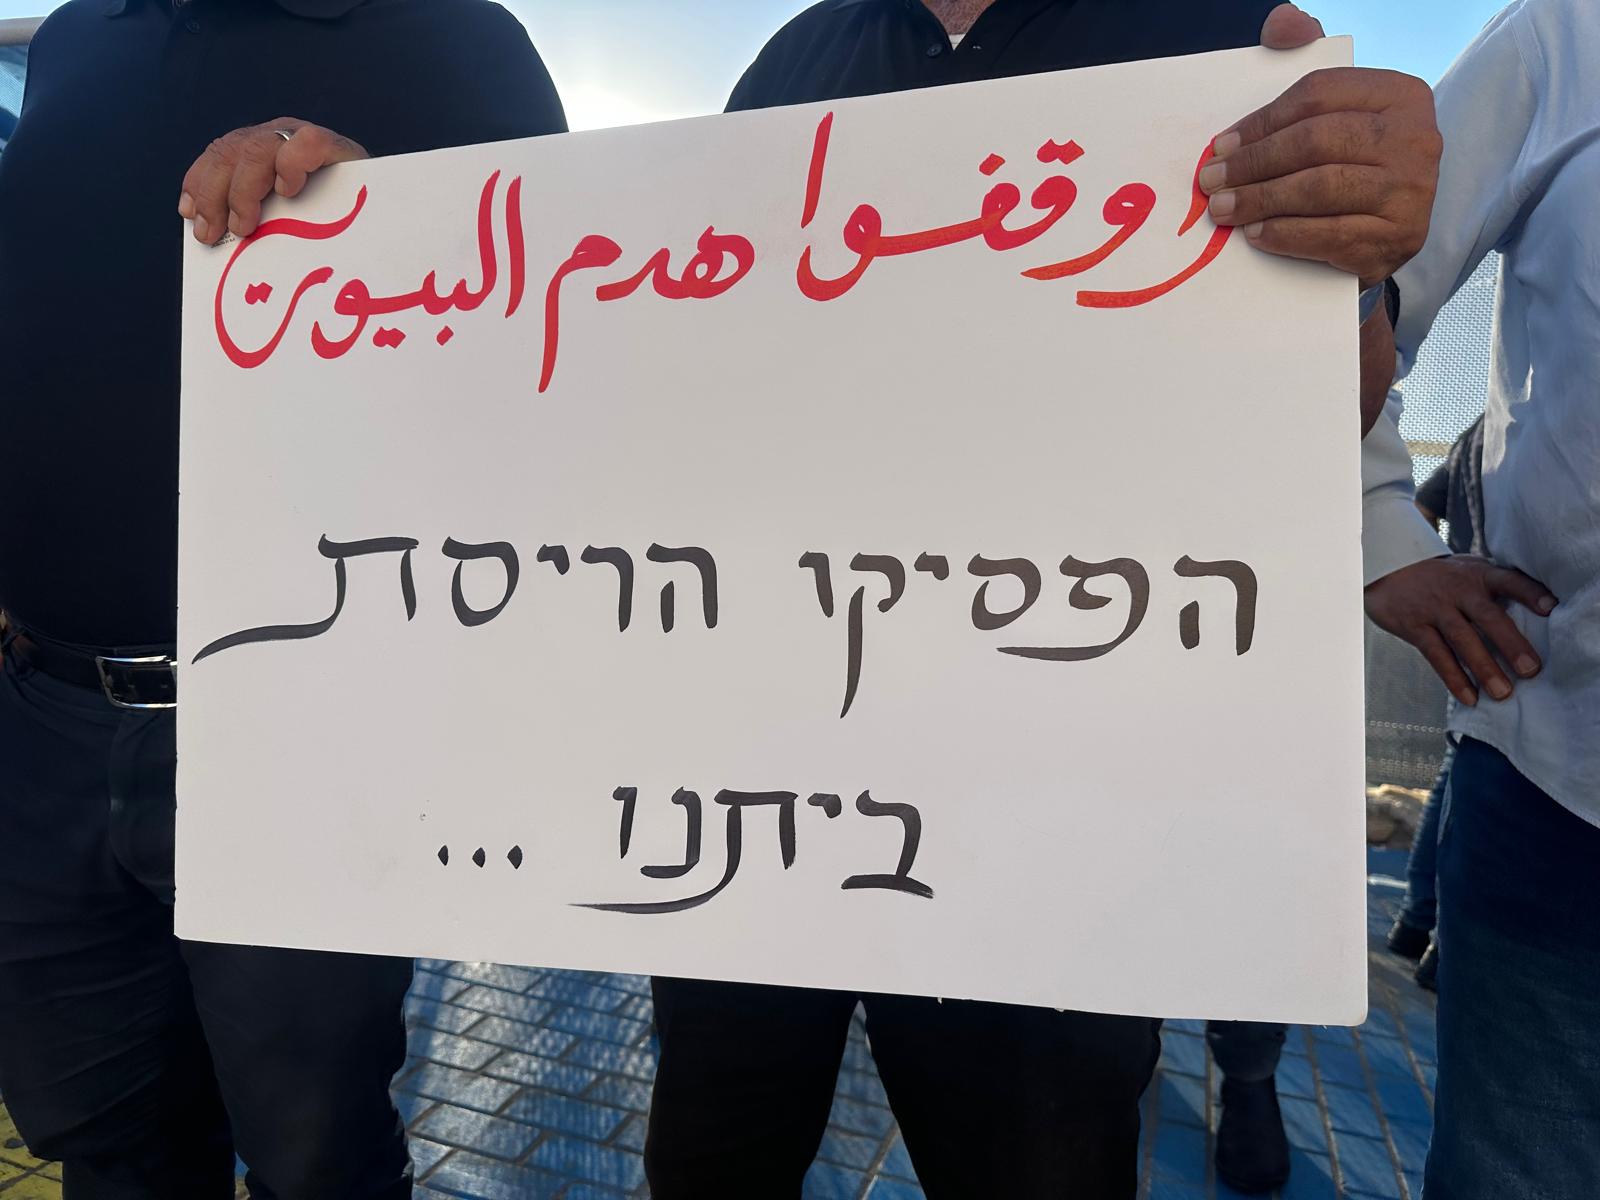 اوقفوا هدم البيوت
הפסיקו הריסת
ביתנו ...